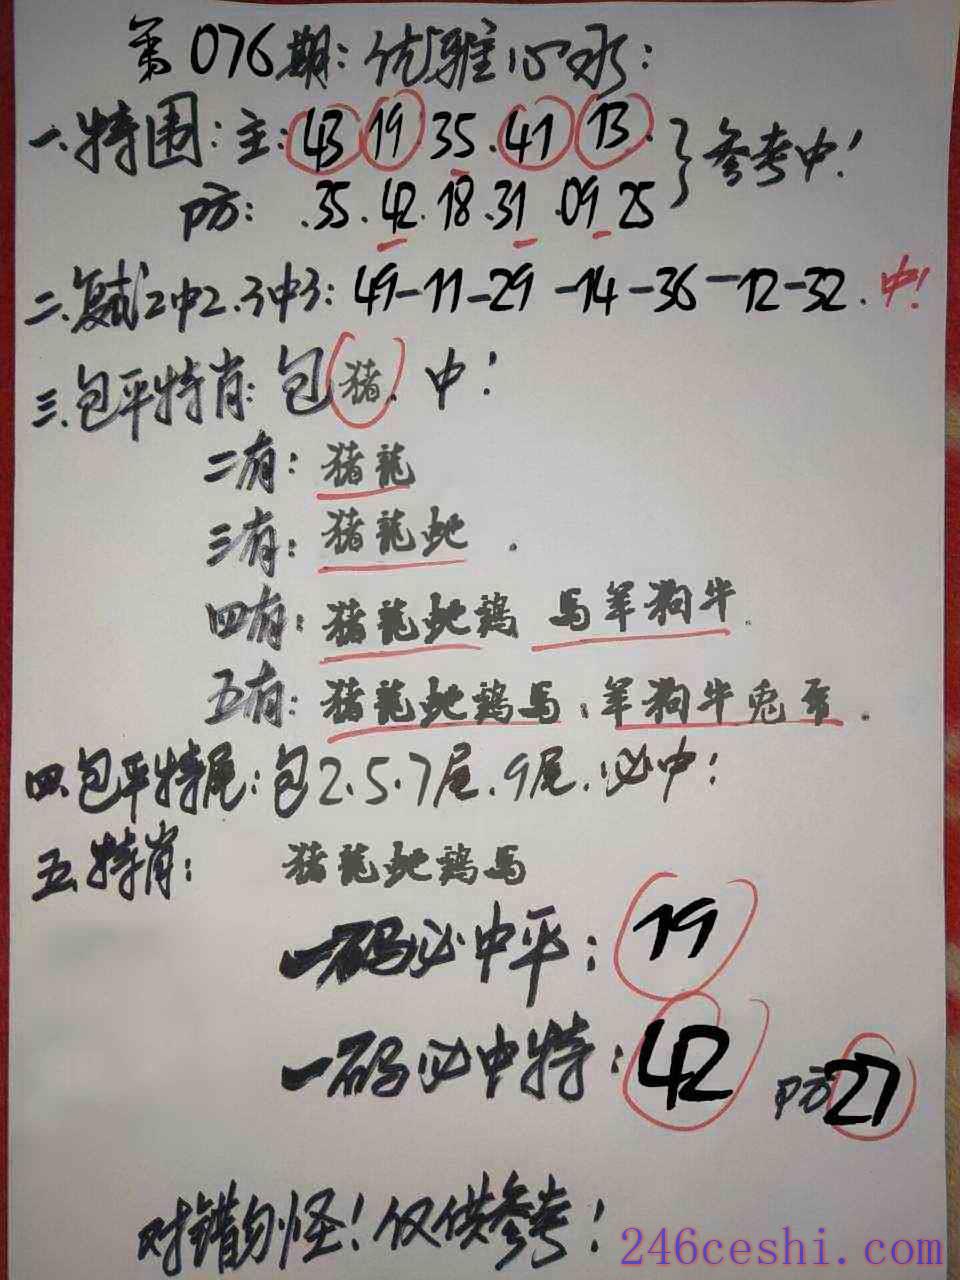 第076期:优雅心水:
一.特围:主:43 19 35.41 13. 参考中!
防: .35.42.18.31.09 25
二.复试2中2.3中3:49-11-29-14-36-12-32.中!
三.包平特肖:包猪.中!
二有:猪龍
三有:猪龍蛇.
四有:猪龍蛇鷄 馬羊狗牛.
五有:猪龍蛇鷄馬:羊狗牛兔.
四.包平特尾:包2.5.7尾.9尾.必中!
五.特肖: 猪龍蛇鷄馬
一码必中平:19
一码必中特:42 防27
对错勿怪!仅供参考!
246ceshi.com